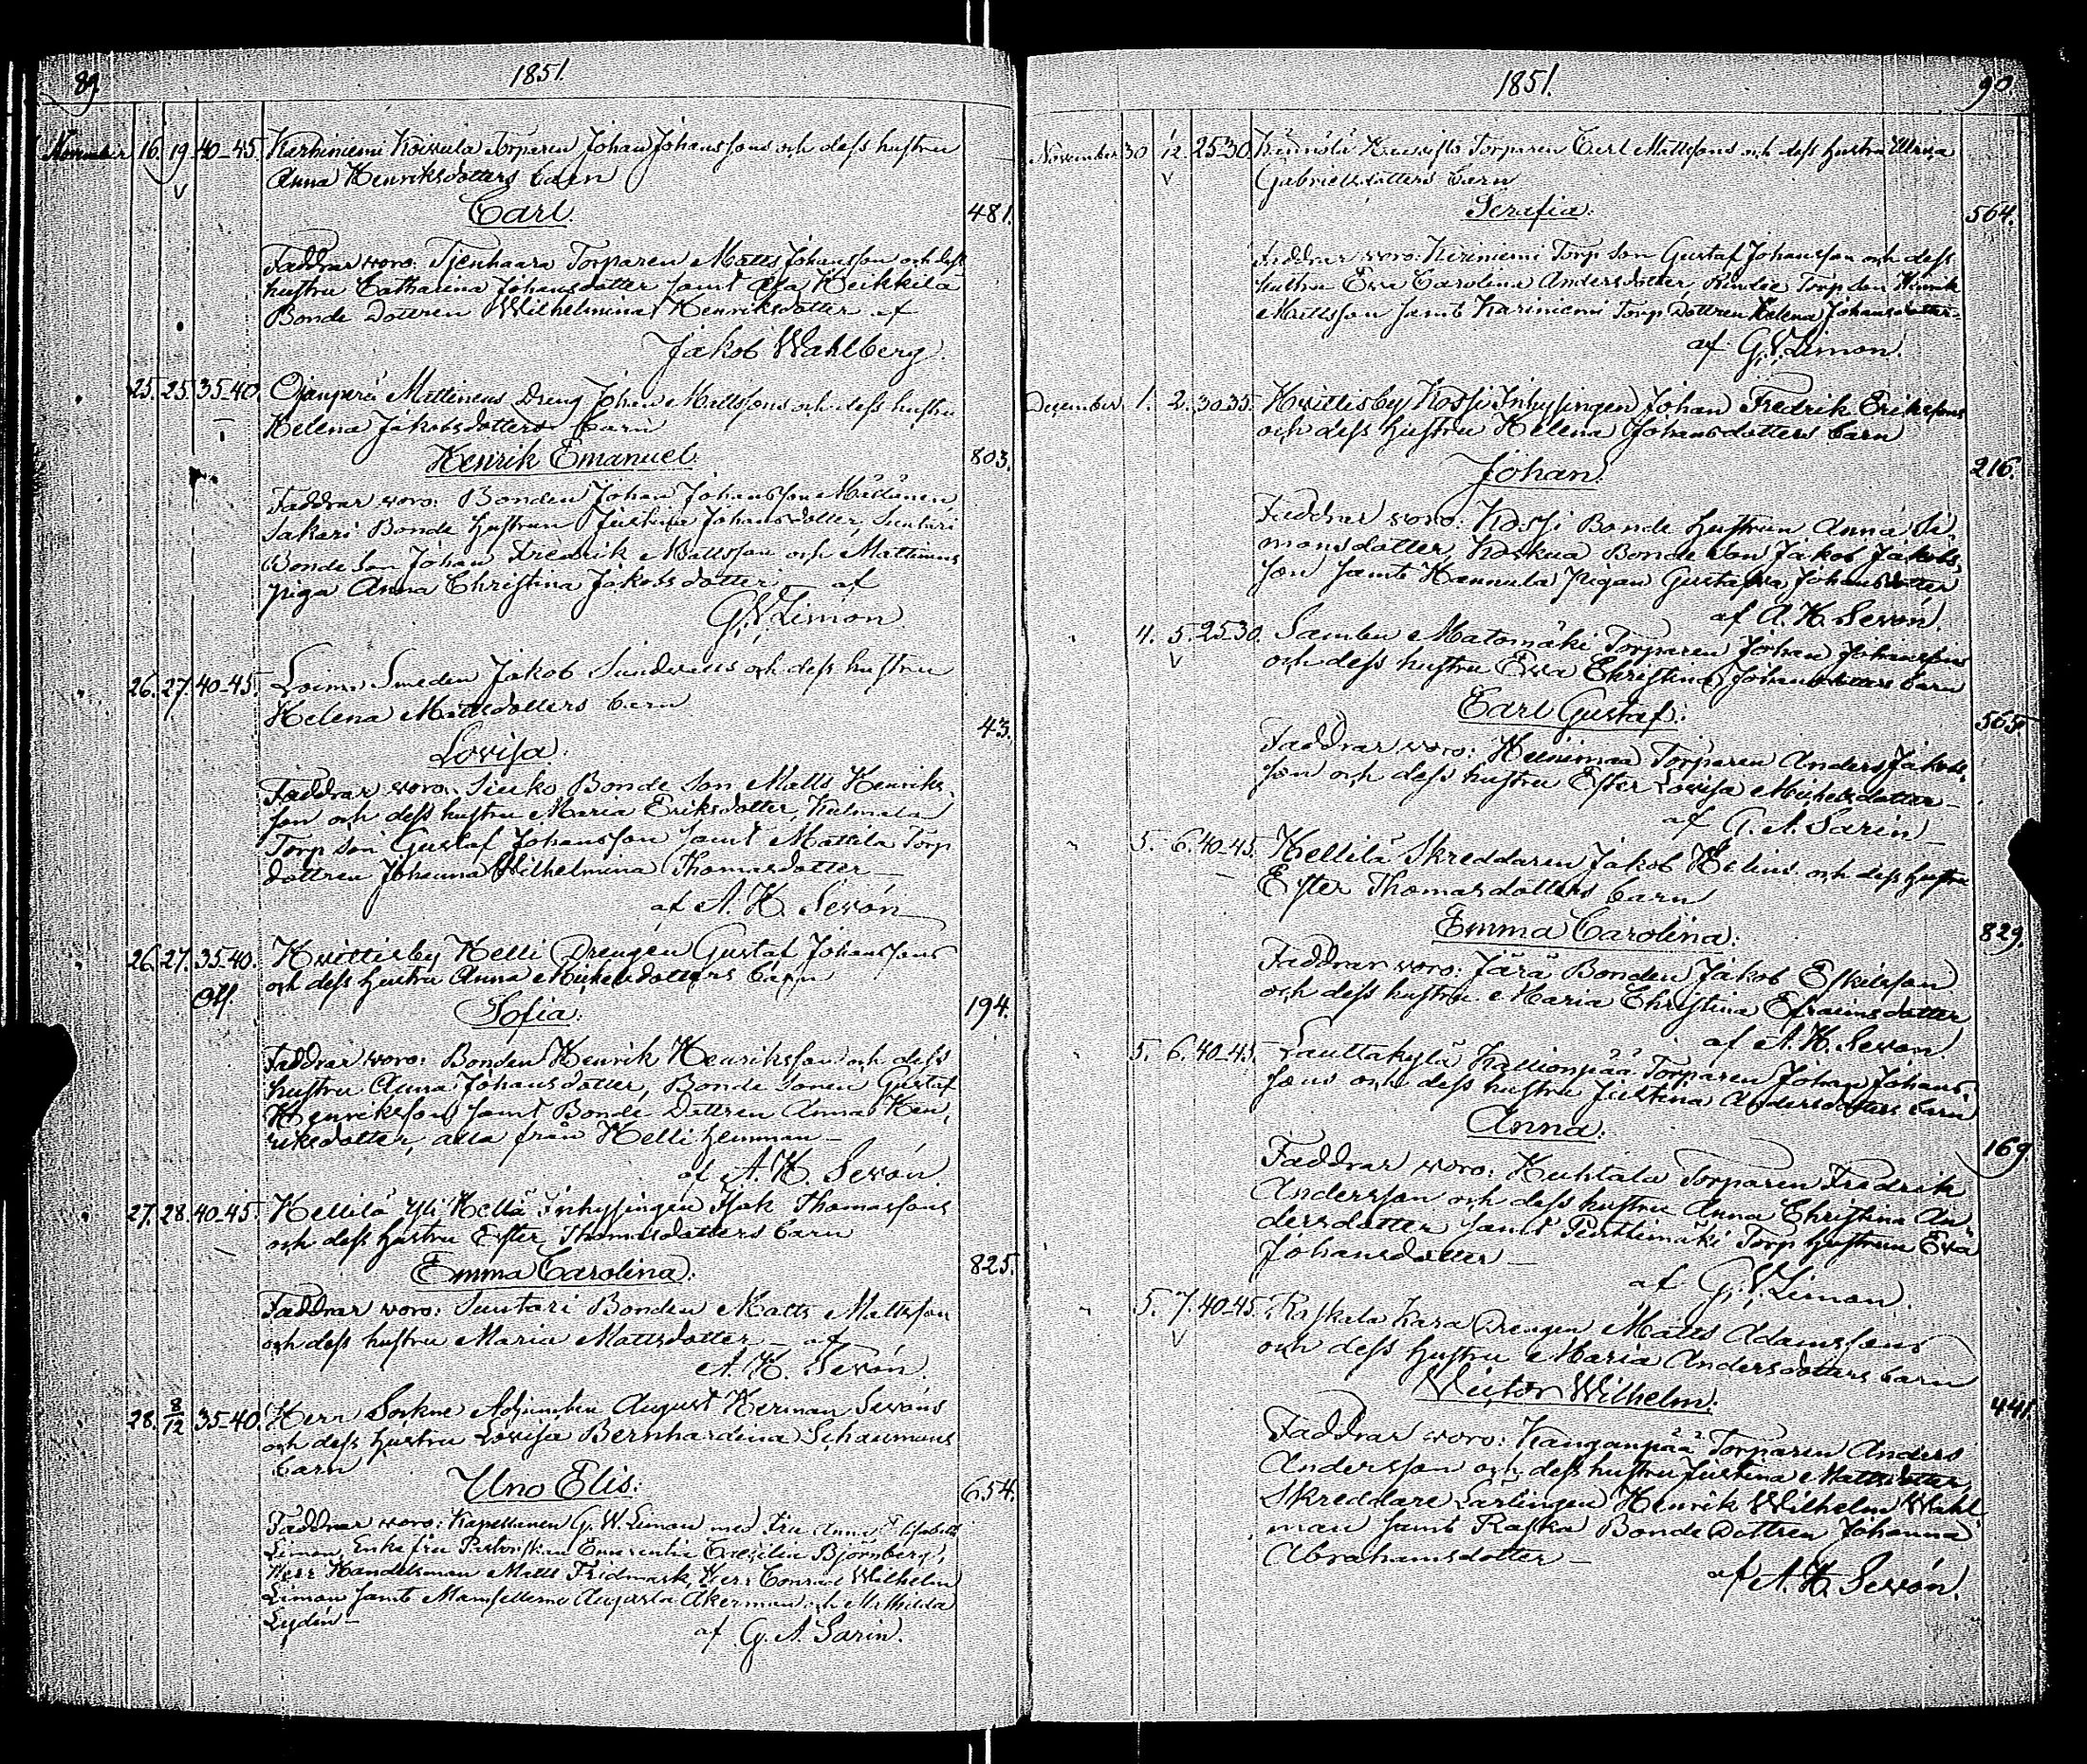 89.
1851.
November 16. 19. 40-45. Karhiniemi Koivula Torparen Johan Johanssons och dess hustru
Anna Henriksdotters barn
Carl.
481.
Faddrar woro: Tjenhaara Torparen Matts Johansson och dess
hustru Catharina Johansdotter samt Heikkilä
Bonde Dottren Wilhelmina Henriksdotter af
Jakob Wahlberg.
25. 25. 35-40. Ojanperä Mattineus Dreng Johan Mattssons och dess hustru
Helena Jakobsdotters barn
Henrik Emanuel
803.
Faddrar woro: Bonden Johan Johansson
Sakari Bonde hustrun Justina Johansdotter, Suntari
Bonde Son Johan Fredrik Mattsson och Mattineus
piga Anna Christina Jakobsdotter — af
G. W. Limon
26. 27. 40-45. Loima Smeden Jakob Sundvalls och dess hustru
Helena Mattsdotters barn
43.
Lovisa.
Faddrar woro: Sieko Bonde Son Matts Henriks-
son och dess hustru Maria Eriksdotter,
Torp Son Gustaf Johansson samt Mattila Torp
dottren Johanna Wilhelmina Thomasdotter —
af A. H. Sevón
26. 27. 35-40. Hvittisby Kelli Drengen Gustaf Johanssons
och dess hustru Anna Mickelsdotters barn
Sofia.
194.
Faddrar woro: Bonden Henrik Henriksson och dess
hustru Anna Johansdotter, Bonde Sonen Gustaf
Henriksson samt Bonde Dottren Anna Hen-
riksdotter, alla från Kelli hemman —
af A. H. Sevón.
27. 28. 40-45. Kellilä Yli Kellä Inhysingen Isak Thomassons
och dess hustru Ester Thomasdotters barn
Emma Carolina.
825.
Faddrar woro: Suntari Bonden Matts Mattsson
och dess hustru Maria Mattsdotter — af
A. H. Sevón.
28. 8/12 35-40. Herr Sockne Adjunkten August Herman Sevóns
och dess hustru Lovisa Bernhardina Schaumans
barn
Uno Elis.
654.
Faddrar woro: Kapellanen G. W. Limon med Fru Anna Elisabeth
Limon, Enkefru Björnberg,
Herr Handelsman Matts Fridmark, Herr Conrad Wilhelm
Limon samt Mamsellerne Augusta Åkerman och Mathilda
Lydén —
af G. A. Sarin.
1851.
90
November 30 12. 25-30. Torparen Carl Mattssons och dess hustru Ulrica
Gabrielsdotters barn
Serafia.
564.
Faddrar woro: Kiriniemi Torp Son Gustaf Johansson och dess
hustru Eva Carolina Andersdotter, Torp Son Henrik
Mattsson samt Kariniemi Torp Dottren Helena Johansdotter —
af G. W. Limon.
December 1. 2. 30-35. Hvittisby Kossi Inhysingen Johan Fredrik Erikssons
och dess hustru Helena Johansdotters barn
Johan.
216.
Faddrar woro: Kossi Bonde hustrun Anna Si-
monsdotter, Koskua Bonde Son Jakob Jakobs-
son samt Hannula pigan Gustafva Johansdotter
af A. H. Sevón.
4. 5. 25-30. Sambu Matomäki Torparen Johan Johanssons
och dess hustru Eva Christina Johansdotters barn
Carl Gustaf.
565
Faddrar woro: Torparen Anders Jakobs-
son och dess hustru Ester Lovisa Michelsdotter —
af G. A. Sarin —
5. 6. 40-45. Kellilä Skreddaren Jakob Helins och dess hustru
Ester Thomasdotters barn
Emma Carolina.
829.
Faddrar woro: Järä Bonden Jakob Eskilsson
och dess hustru Maria Christina Efraimsdotter
af A. H. Sevón.
5. 6. 40-45. Lauttakylä Kallionpää Torparen Johan Johans-
sons och dess hustru Justina Andersdotters barn
Anna.
169
Faddrar woro: Huhtala Torparen Fredrik
Andersson och dess hustru Anna Christina An-
dersdotter samt Penttimäki Torp hustrun Eva
Johansdotter —
af G. W. Limon.
5. 7. 40-45. Raskala Kara Drengen Matts Adamssons
och dess hustru Maria Andersdotters barn
Victor Wilhelm.
441
Faddrar woro: Kanganpää Torparen Anders
Andersson och dess hustru Justina Mattsdotter,
Skreddare Lärlingen Henrik Wilhelm Wahl-
man samt Raska Bonde Dottren Johanna
Abrahamsdotter —
af A. H. Sevón.